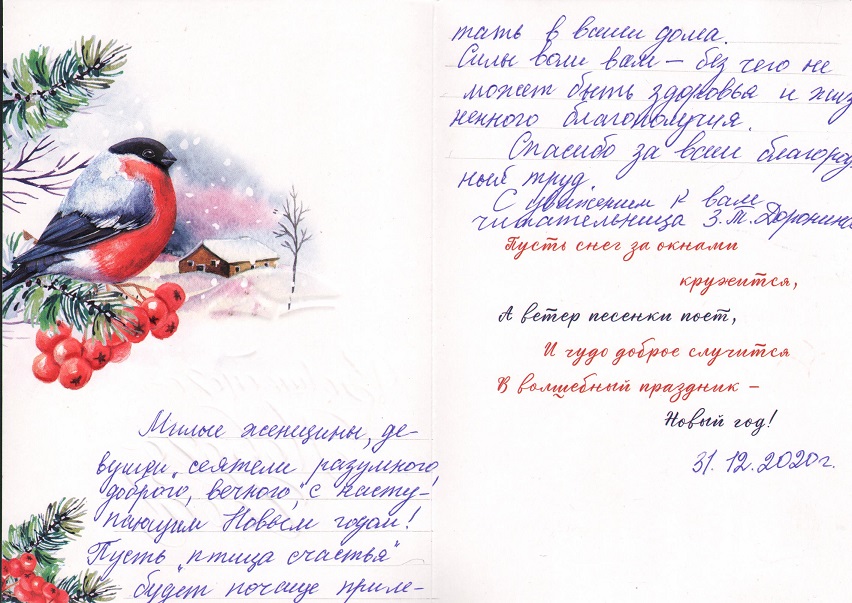 Милые женщины, де-
вушки, "сеятели разумного,
доброго, вечного," с насту-
пающим Новым годом!
Пусть "птица счастья"
будет почаще приле-
тать в ваши дома.
Силы воли вам – без чего не
может быть здоровья и жиз
ненного благополучия.
Спасибо за ваш благород
ный труд.
С уважением к вам
читательница З.М. Доронина
Пусть снег за окнами
кружится,
А ветер песенки поет,
И чудо доброе случится
В волшебный праздник –
Новый год!
31.12.2020г.